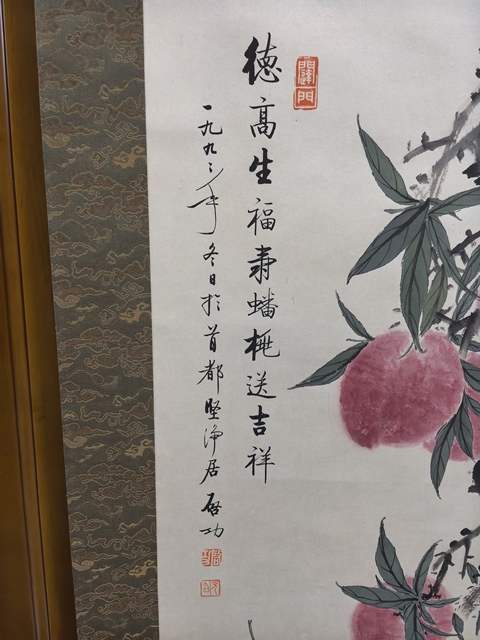 德高生福寿蟠桃送吉祥
一九九三年冬日於首都坚净居启功